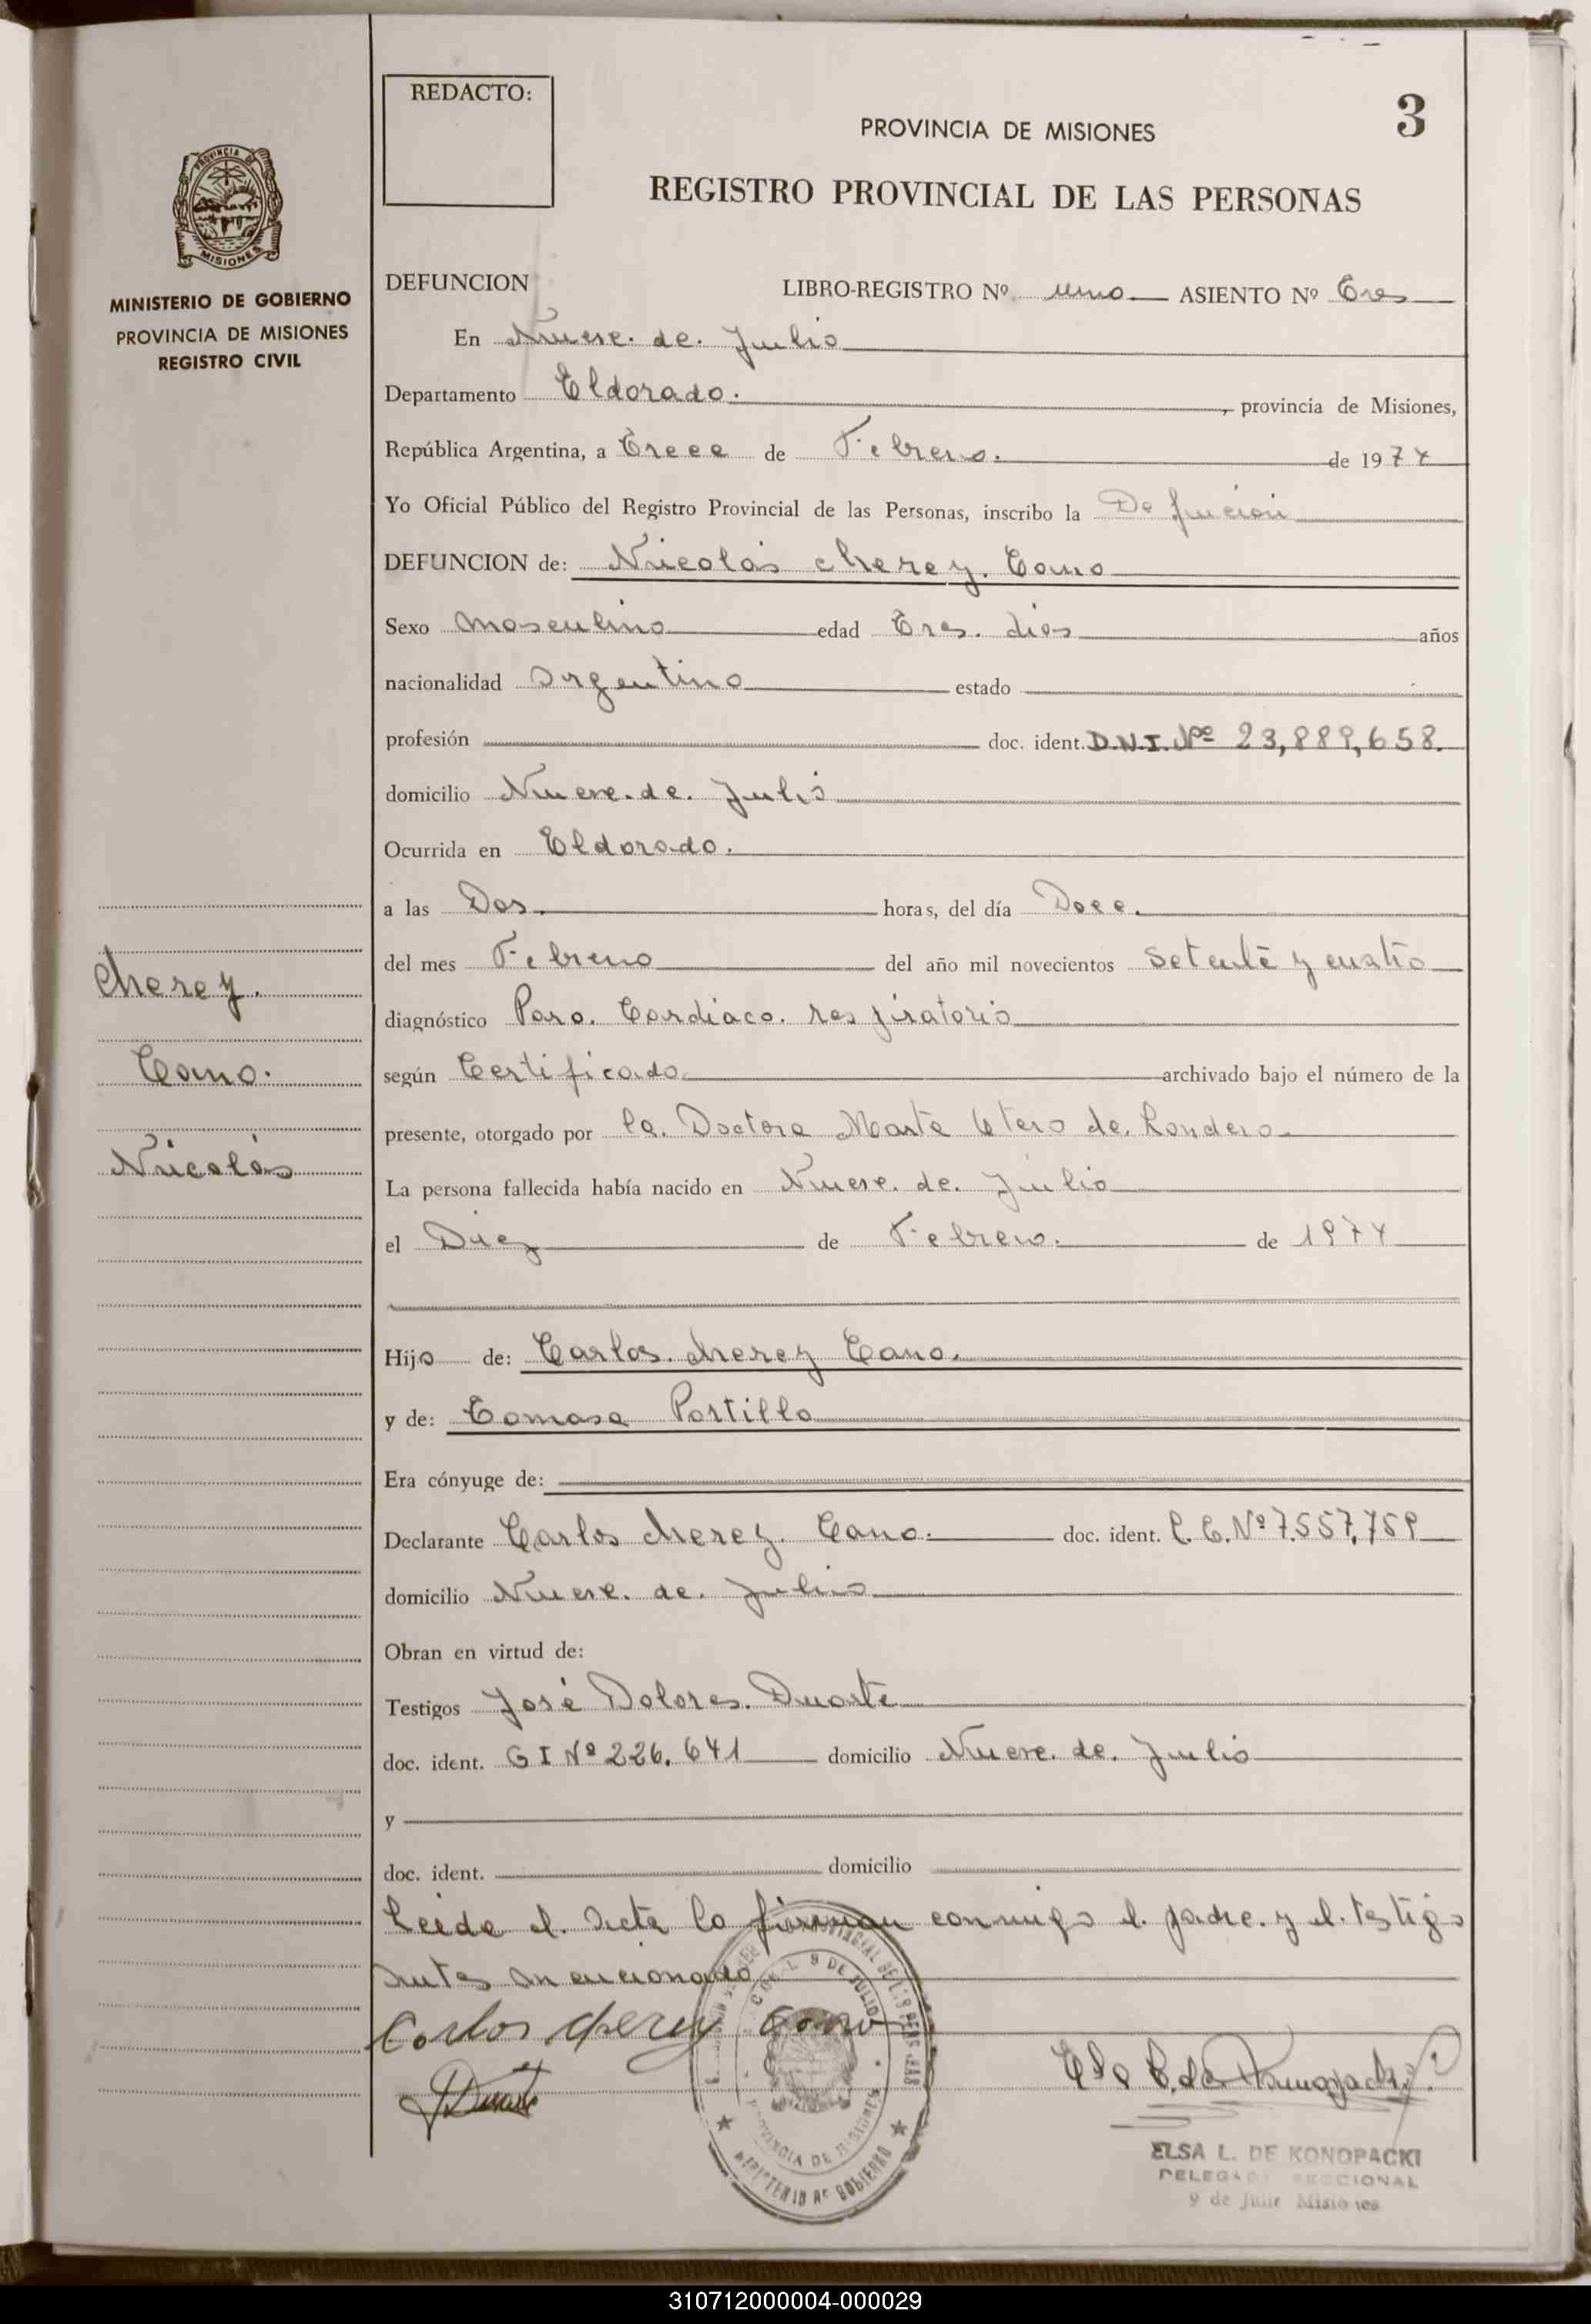 REDACTO:
3
PROVINCIA DE MISIONES
REGISTRO PROVINCIAL DE LAS PERSONAS
PROVINCIA DE
MISIONES
MINISTERIO DE GOBIERNO
PROVINCIA DE MISIONES
REGISTRO CIVIL
cherey.
Cano.
Nicolás
DEFUNCION LIBRO-REGISTRO Nº uno ASIENTO Nº Tres
En Nueve. de. Julio
Departamento Eldorado. , provincia de Misiones,
República Argentina, a Trece de Febrero. de 1974
Yo Oficial Público del Registro Provincial de las Personas, inscribo la Defunción
DEFUNCION de: Nicolás cherey. Cano
Sexo Masculino edad Tres. dias años
nacionalidad Argentino estado
profesión doc. ident. D.N.I. Nº 23,889,658.
domicilio Nueve. de. Julio
Ocurrida en Eldorado.
a las Dos. horas, del día Doce.
del mes Febrero del año mil novecientos Setenta y cuatro
diagnóstico Paro. Cardiaco. respiratorio
según Certificado archivado bajo el número de la
presente, otorgado por la. Doctora Marta Otero de. Londero
La persona fallecida había nacido en Nueve. de. Julio
el Diez de Febrero. de 1974
Hijo de: Carlos. cherey Cano.
y de: Tomasa Portillo
Era cónyuge de:
Declarante Carlos cherey. Cano. doc. ident. L.E. Nº 7.557,759
domicilio Nueve. de. Julio
Obran en virtud de:
Testigos José Dolores. Duarte
doc. ident. C I Nº 226.641 domicilio Nueve. de. Julio
y
doc. ident. domicilio
Leida el. Acta la firman conmigo el. padre. y el. testigo
antes mencionado
Carlos cherey Cano
JDuarte
9 DE JULIO
PROVINCIA DE MISIONES
MINISTERIO DE GOBIERNO
ELSA L. DE KONOPACKI
DELEGADO SECCIONAL
9 de Julio Misiones
310712000004-000029